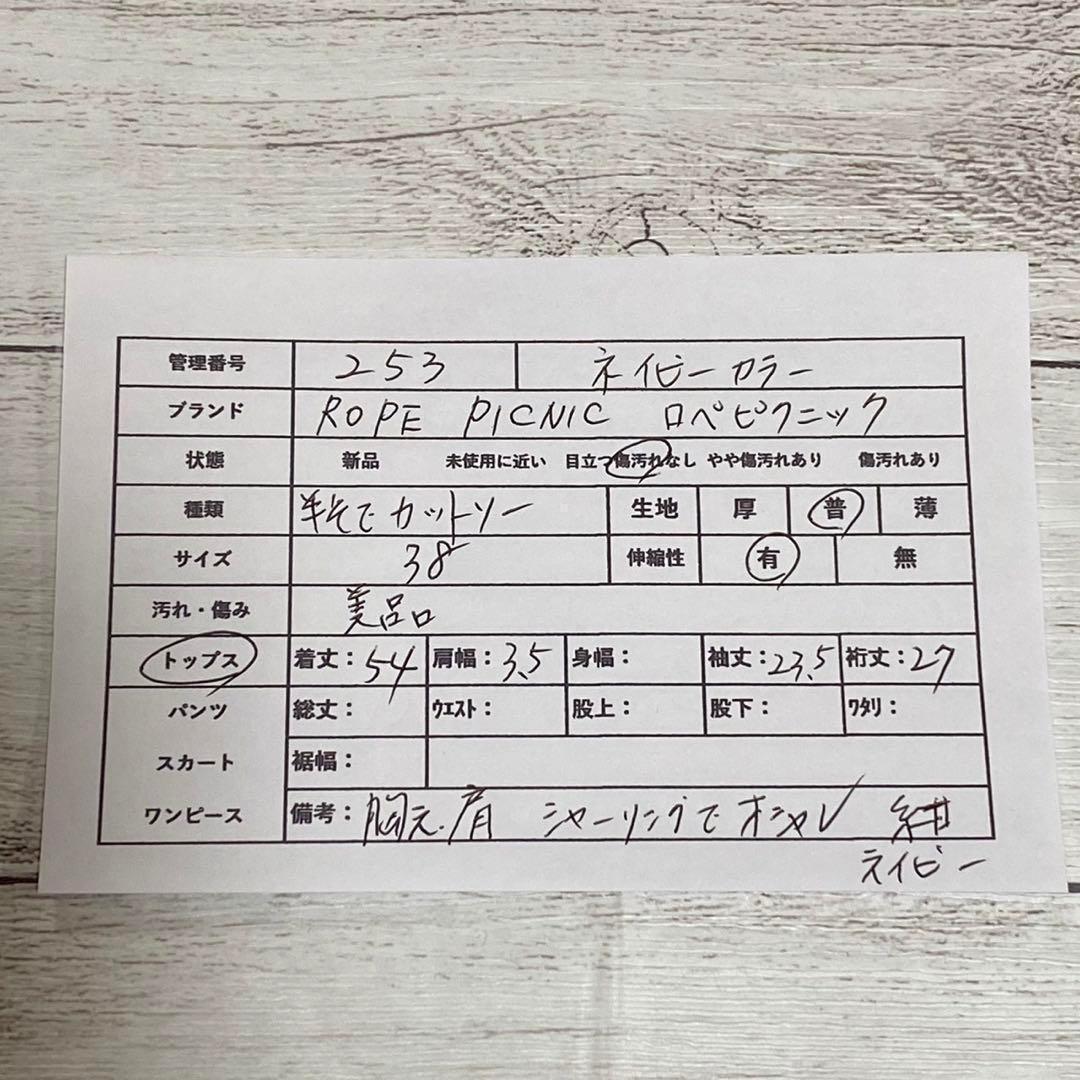 管理番号 253 ネイビーカラー
ブランド ROPE PICNIC ロペピクニック
状態 新品 未使用に近い 目立つ傷汚れなし やや傷汚れあり 傷汚れあり
種類 半そでカットソー 生地 厚 普 薄
サイズ 38 伸縮性 有 無
汚れ・傷み 美品
トップス 着丈：54 肩幅：3.5 身幅： 袖丈：23.5 裄丈：27
パンツ 総丈： ｳｴｽﾄ： 股上： 股下： ﾜﾀﾘ：
スカート 裾幅：
ワンピース 備考：胸元.肩 シャーリングでオシャレ 紺
ネイビー